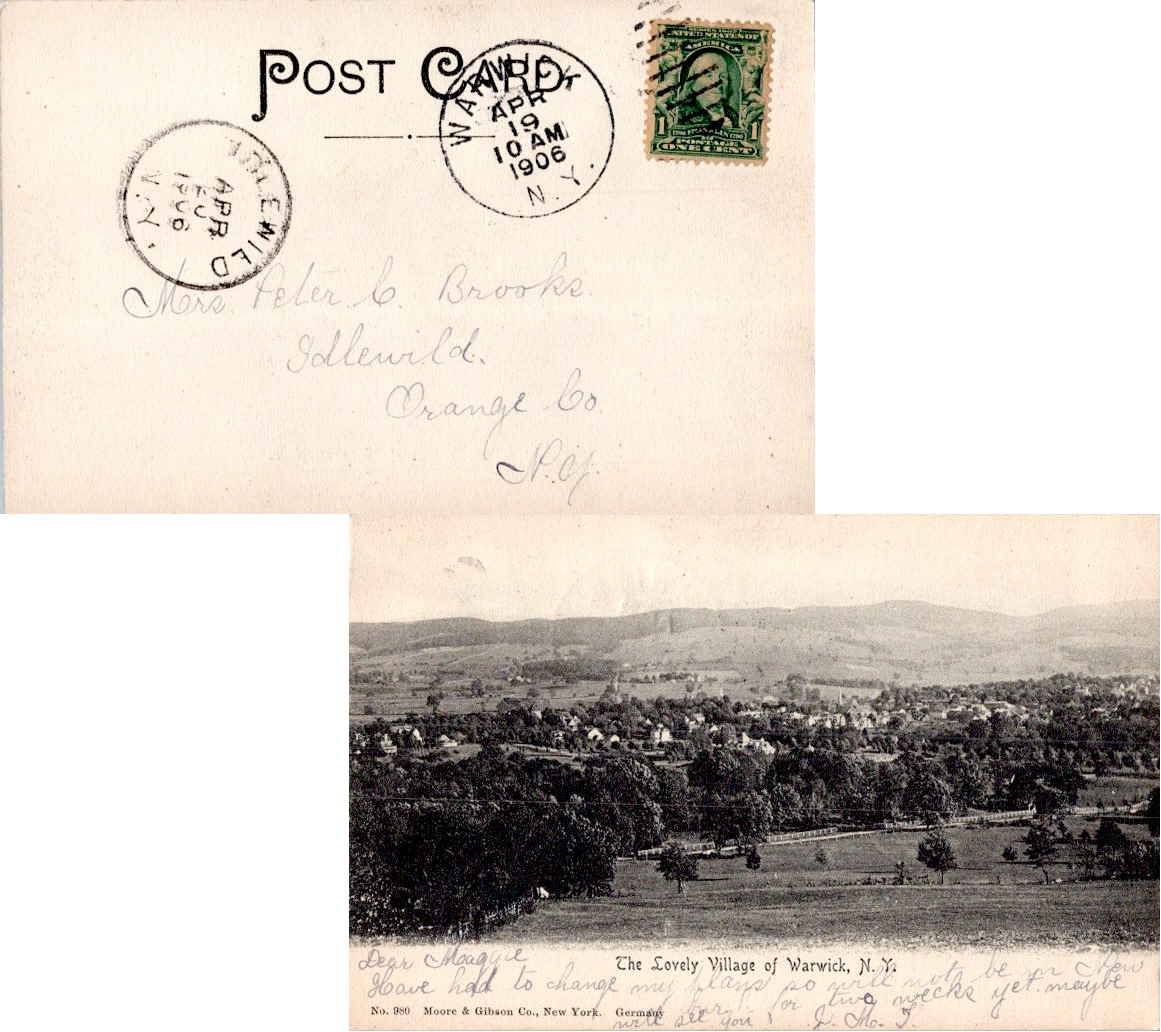 POST CARD
WARWICK
APR
19
10 AM
1906
N.Y.
SERIES 1902
UNITED STATES OF
AMERICA
1 FRANKLIN 1
POSTAGE
ONE CENT
IDLEWILD
APR
1906
N.Y.
Mrs. Peter C. Brooks.
Idlewild.
Orange Co.
N.Y.
The Lovely Village of Warwick, N. Y.
Dear Maggie
Have had to change my plans so will not be in New
for two weeks yet. maybe
will see you J. M. T.
No. 980 Moore & Gibson Co., New York. Germany